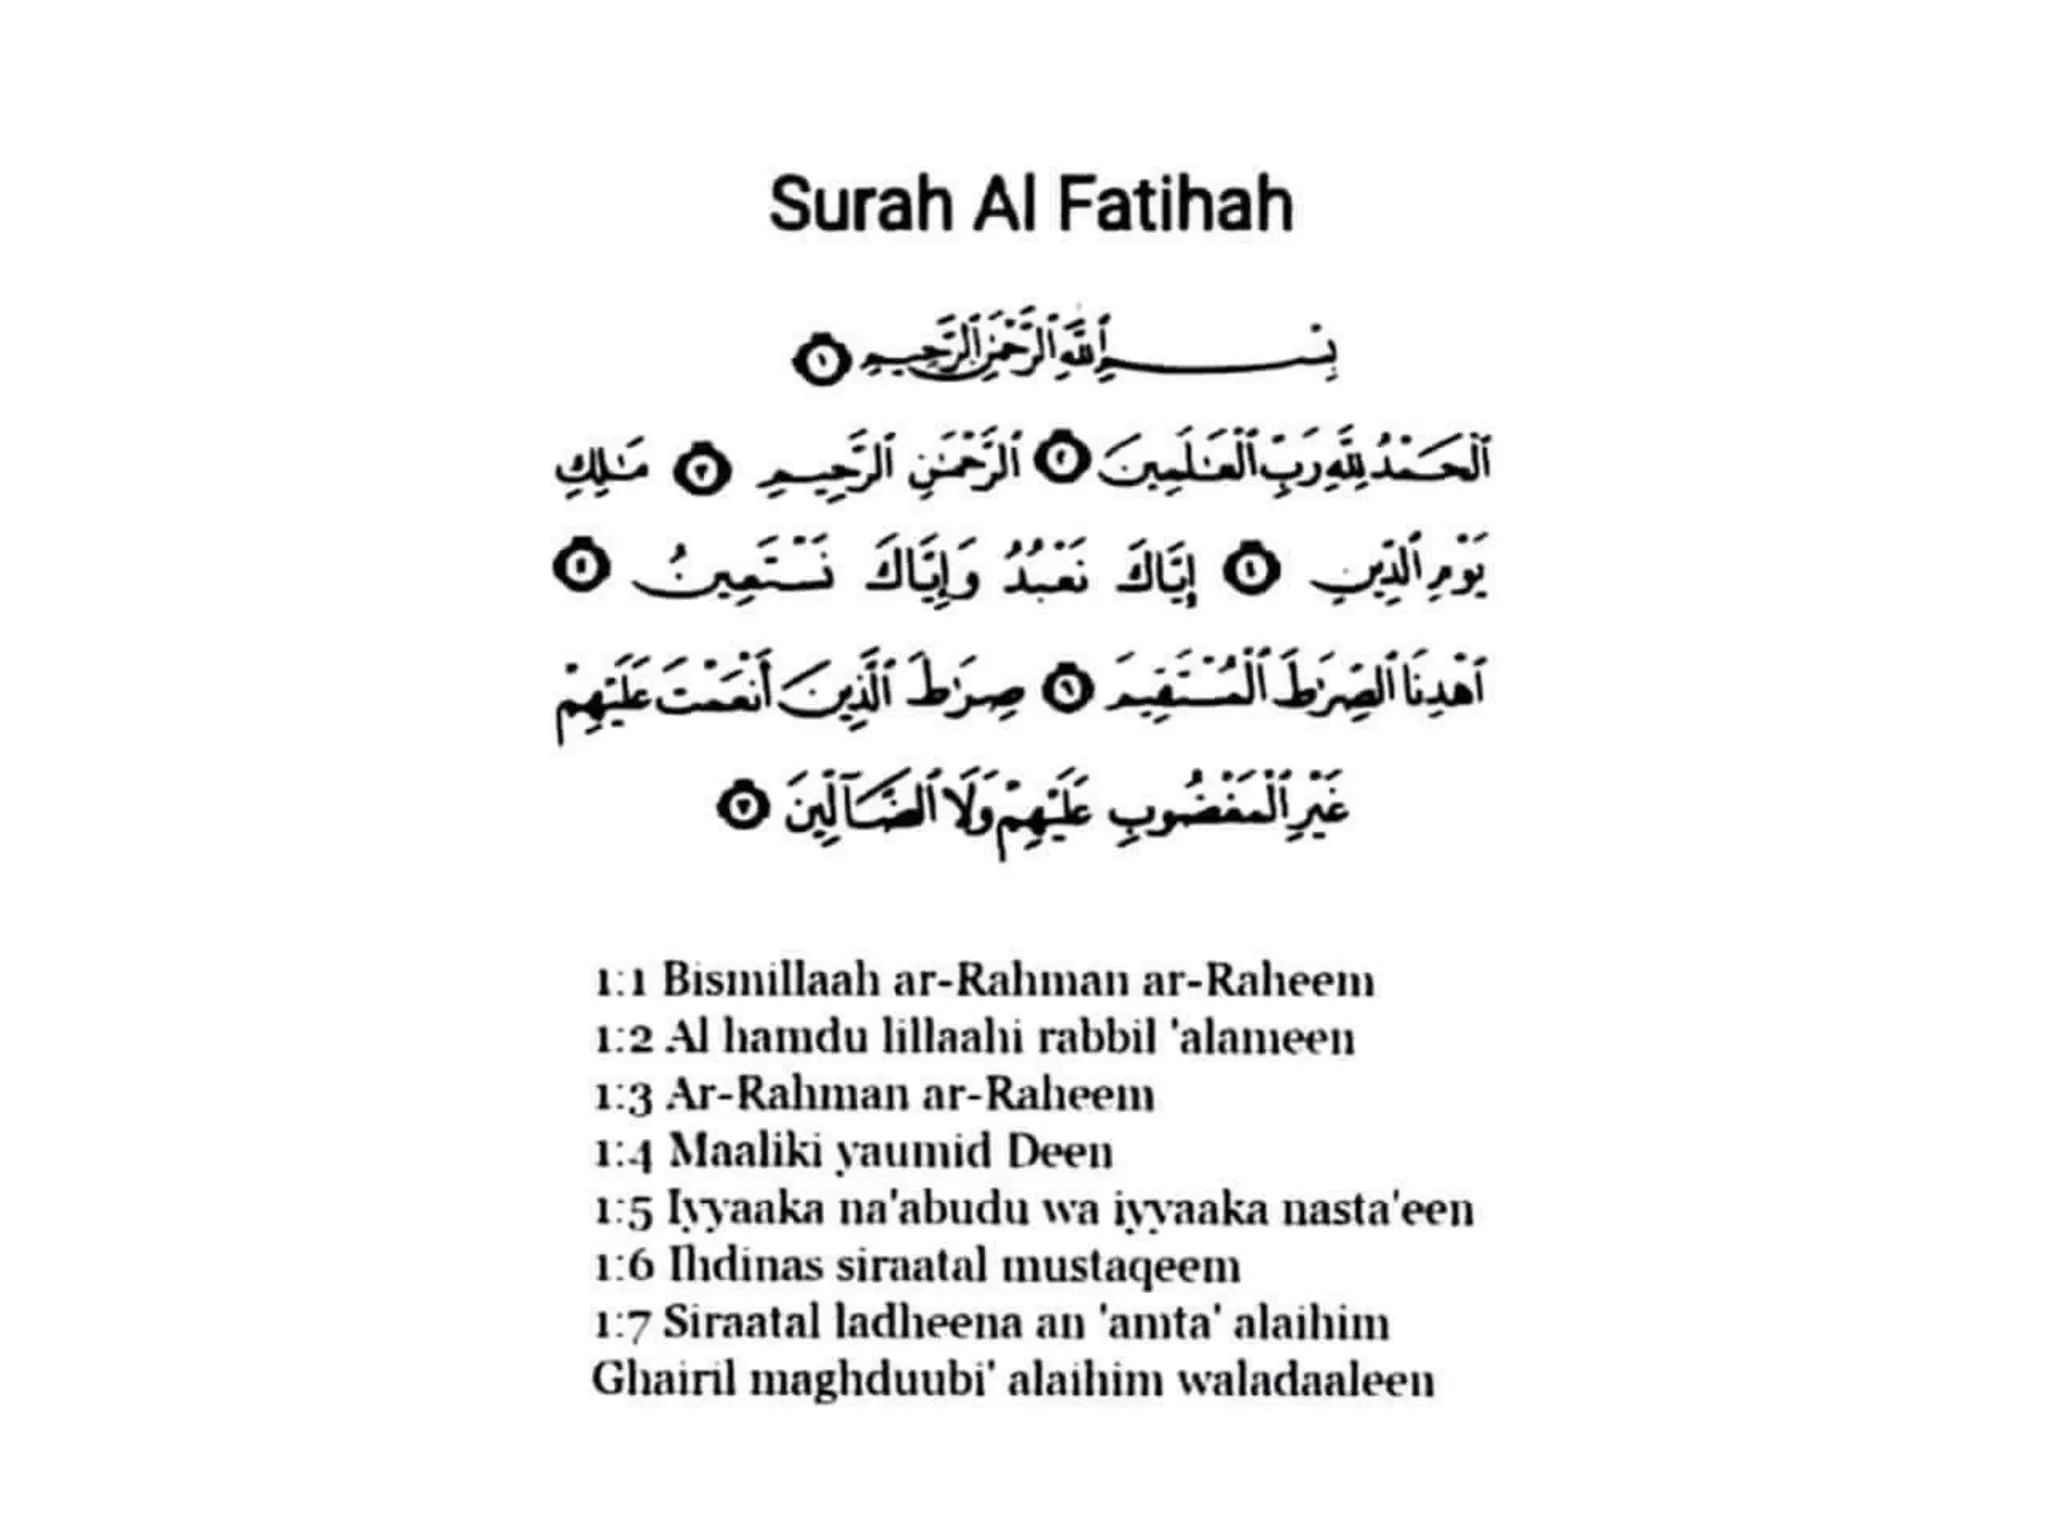 Surah Al Fatihah
بِسْمِ ٱللَّهِ ٱلرَّحْمَٰنِ ٱلرَّحِيمِ ١
ٱلْحَمْدُ لِلَّهِ رَبِّ ٱلْعَٰلَمِينَ ٢ ٱلرَّحْمَٰنِ ٱلرَّحِيمِ ٣ مَٰلِكِ
يَوْمِ ٱلدِّينِ ٤ إِيَّاكَ نَعْبُدُ وَإِيَّاكَ نَسْتَعِينُ ٥
ٱهْدِنَا ٱلصِّرَٰطَ ٱلْمُسْتَقِيمَ ٦ صِرَٰطَ ٱلَّذِينَ أَنْعَمْتَ عَلَيْهِمْ
غَيْرِ ٱلْمَغْضُوبِ عَلَيْهِمْ وَلَا ٱلضَّآلِّينَ ٧
1:1 Bismillaah ar-Rahman ar-Raheem
1:2 Al hamdu lillaahi rabbil 'alameen
1:3 Ar-Rahman ar-Raheem
1:4 Maaliki yaumid Deen
1:5 Iyyaaka na'abudu wa iyyaaka nasta'een
1:6 Ihdinas siraatal mustaqeem
1:7 Siraatal ladheena an 'amta' alaihim
Ghairil maghduubi' alaihim waladaaleen